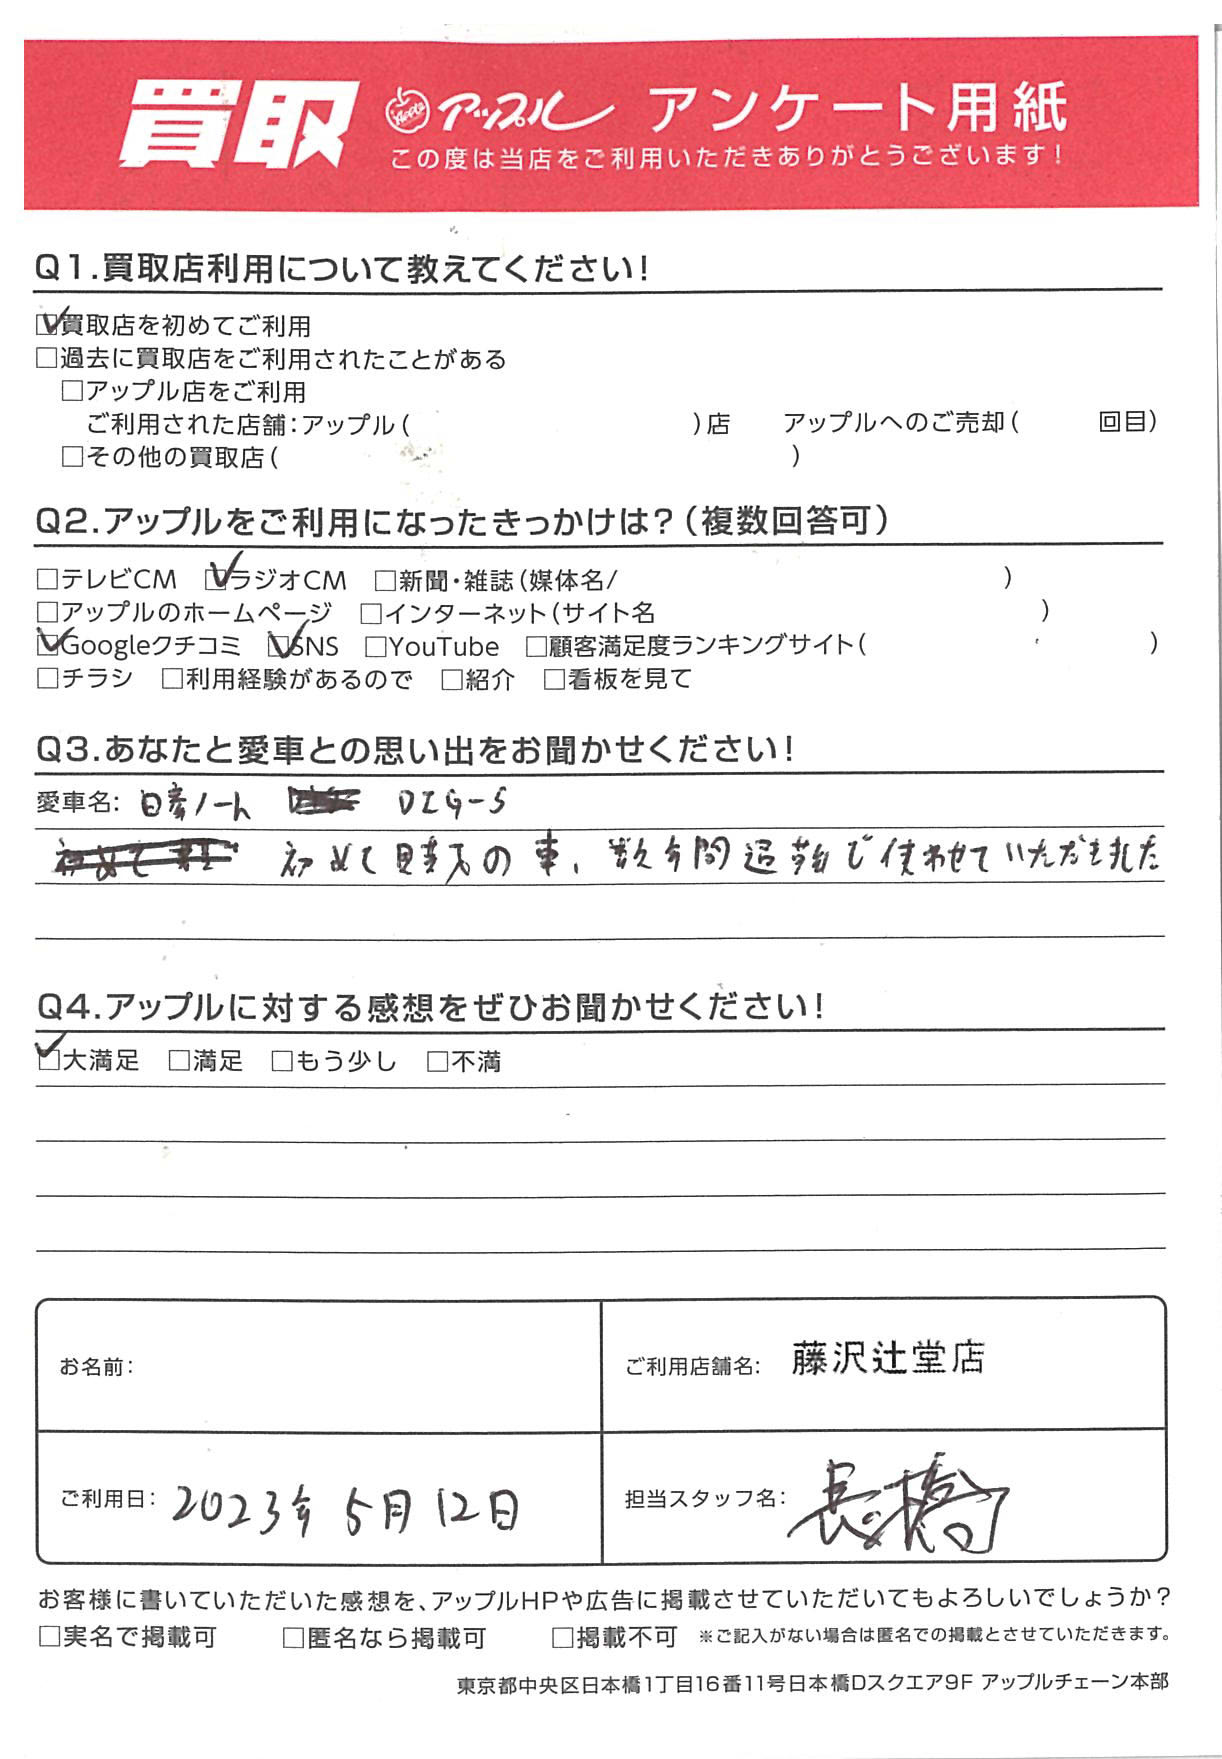 買取 アップル アンケート用紙
この度は当店をご利用いただきありがとうございます!
Q1.買取店利用について教えてください!
☑買取店を初めてご利用
□過去に買取店をご利用されたことがある
□アップル店をご利用
ご利用された店舗:アップル( )店 アップルへのご売却( 回目)
□その他の買取店( )
Q2.アップルをご利用になったきっかけは?(複数回答可)
□テレビCM ☑ラジオCM □新聞・雑誌(媒体名/ )
□アップルのホームページ □インターネット(サイト名 )
☑Googleクチコミ ☑SNS □YouTube □顧客満足度ランキングサイト( )
□チラシ □利用経験があるので □紹介 □看板を見て
Q3.あなたと愛車との思い出をお聞かせください!
愛車名: 日産ノート DIG-S
初めて購入の車、数年間通勤で使わせていただきました
Q4.アップルに対する感想をぜひお聞かせください!
☑大満足 □満足 □もう少し □不満
お名前: ご利用店舗名: 藤沢辻堂店
ご利用日: 2023年5月12日 担当スタッフ名: 長橋
お客様に書いていただいた感想を、アップルHPや広告に掲載させていただいてもよろしいでしょうか?
□実名で掲載可 □匿名なら掲載可 □掲載不可 ※ご記入がない場合は匿名での掲載とさせていただきます。
東京都中央区日本橋1丁目16番11号日本橋Dスクエア9F アップルチェーン本部